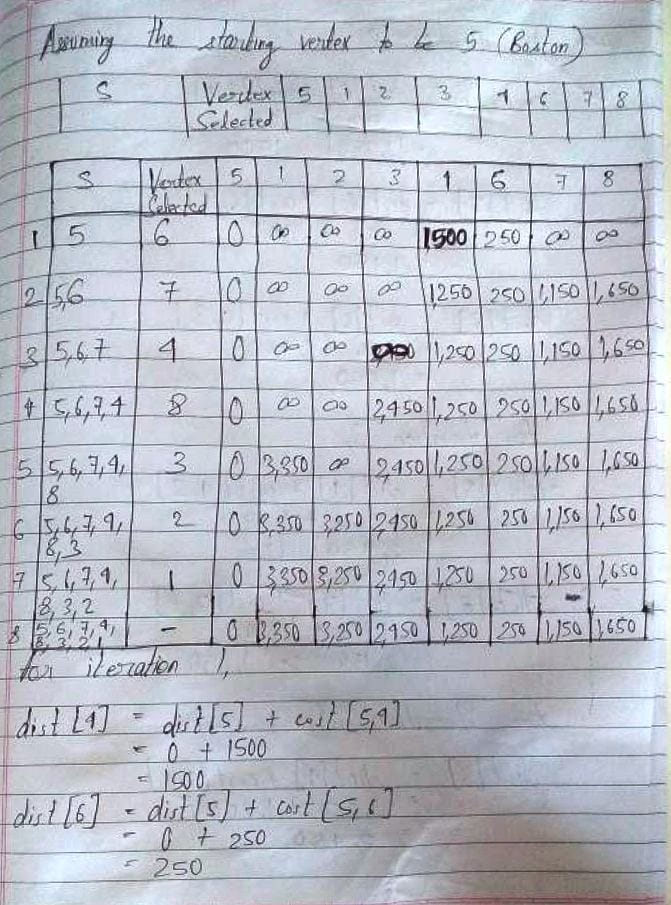 Assuming the starting vertex to be 5 (Boston)
S Vertex Selected 5 1 2 3 4 6 7 8
S Vertex Selected 5 1 2 3 4 6 7 8
1 5 6 0 ∞ ∞ ∞ 1500 250 ∞ ∞
2 5,6 7 0 ∞ ∞ ∞ 1,250 250 1,150 1,650
3 5,6,7 4 0 ∞ ∞ 1,250 250 1,150 1,650
4 5,6,7,4 8 0 ∞ ∞ 2,450 1,250 250 1,150 1,650
5 5,6,7,4, 3 0 3,350 ∞ 2,450 1,250 250 1,150 1,650
8
6 5,6,7,4, 2 0 3,350 3,250 2,450 1,250 250 1,150 1,650
8,3
7 5,6,7,4, 1 0 3,350 3,250 2,450 1,250 250 1,150 1,650
8,3,2
8 5,6,7,4, - 0 3,350 3,250 2,450 1,250 250 1,150 1,650
8,3,2,1
for iteration 1,
dist [4] = dist [5] + cost [5,4]
= 0 + 1500
= 1500
dist [6] = dist [5] + cost [5,6]
= 0 + 250
= 250